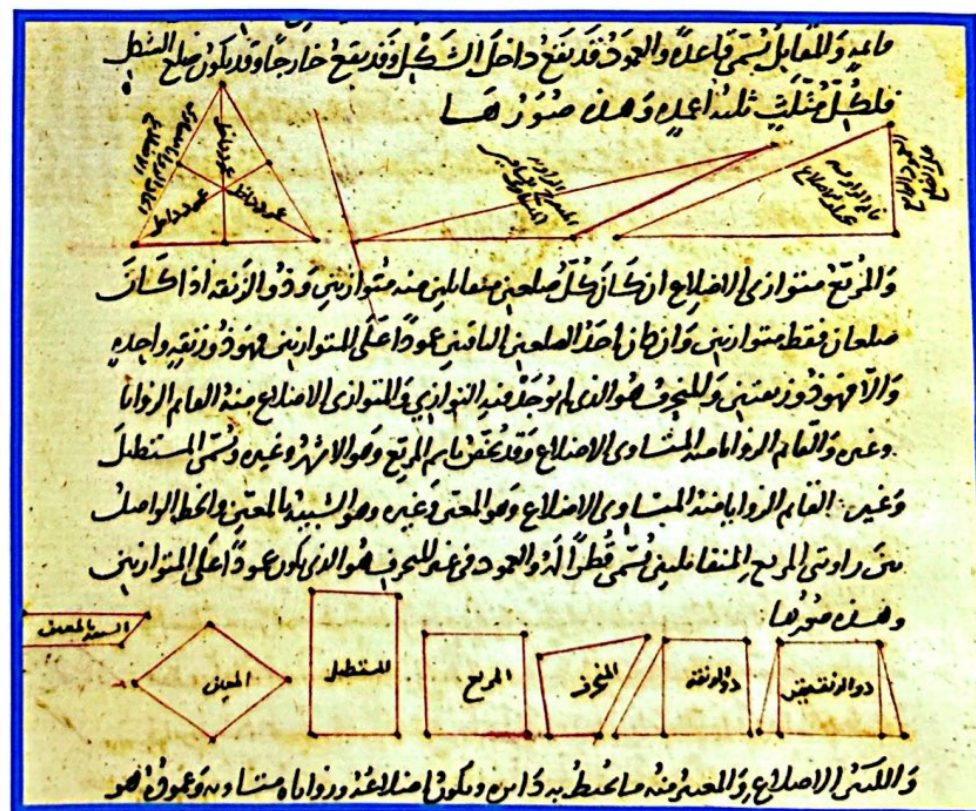 قائمه وَالمقابل يُسَمّى قاعدةً والعمود قد يقع داخل الشكل وقد يقع خارجاً وقد يكون ضلع الشكل
فلكلّ مُثلّثٍ ثلثة اعمدةٍ وَهذه صُوَرُها
عمود داخل
عمود داخل
عمود داخل
وَالمُربّع متوازى الاضلاع ان كان كُلّ ضلعين متقابلين منه مُتوازيين وَذو الزنقه اذا كانَ
ضلعان فقط متوازيين وَان كان احَدُ الضلعين الباقيين عموداً عَلى المتوازيين فهو ذو زنقهٍ واحدهٍ
وَالّا فهو ذو زنقتين وَالمنحرف هو الذى لم يُوجَد فيه التوازي وَالمتوازى الاضلاع منه القائم الزوايا
وغيره وَالقائم الزوايا منه المتساوى الاضلاع وَقد يُخصّ باسم المربّع وَهو الاشهر وغيره وَيُسَمّى المستطيل
وَغير القائم الزوايا منه المتساوى الاضلاع وَهو المعيّن وَغيره وهو الشبيه بالمعيّن والخط الواصل
بينَ زاويتى المربع المتقابلتين يُسَمّى قُطراً لَهُ والعمود فى غير المنحرف هو الذى يكون عموداً عَلَى المتوازيين
وهذه صُوَرُها
ذو الزنقتين
ذو الزنقه
المنحرف
المربع
المستطيل
المعين
الشبيه بالمعين
وَالكثير الاضلاع وَالمعتبر منهُ ما يحيط به دَايره ويكون اضلاعه وزواياه متساويه وَعموده هو